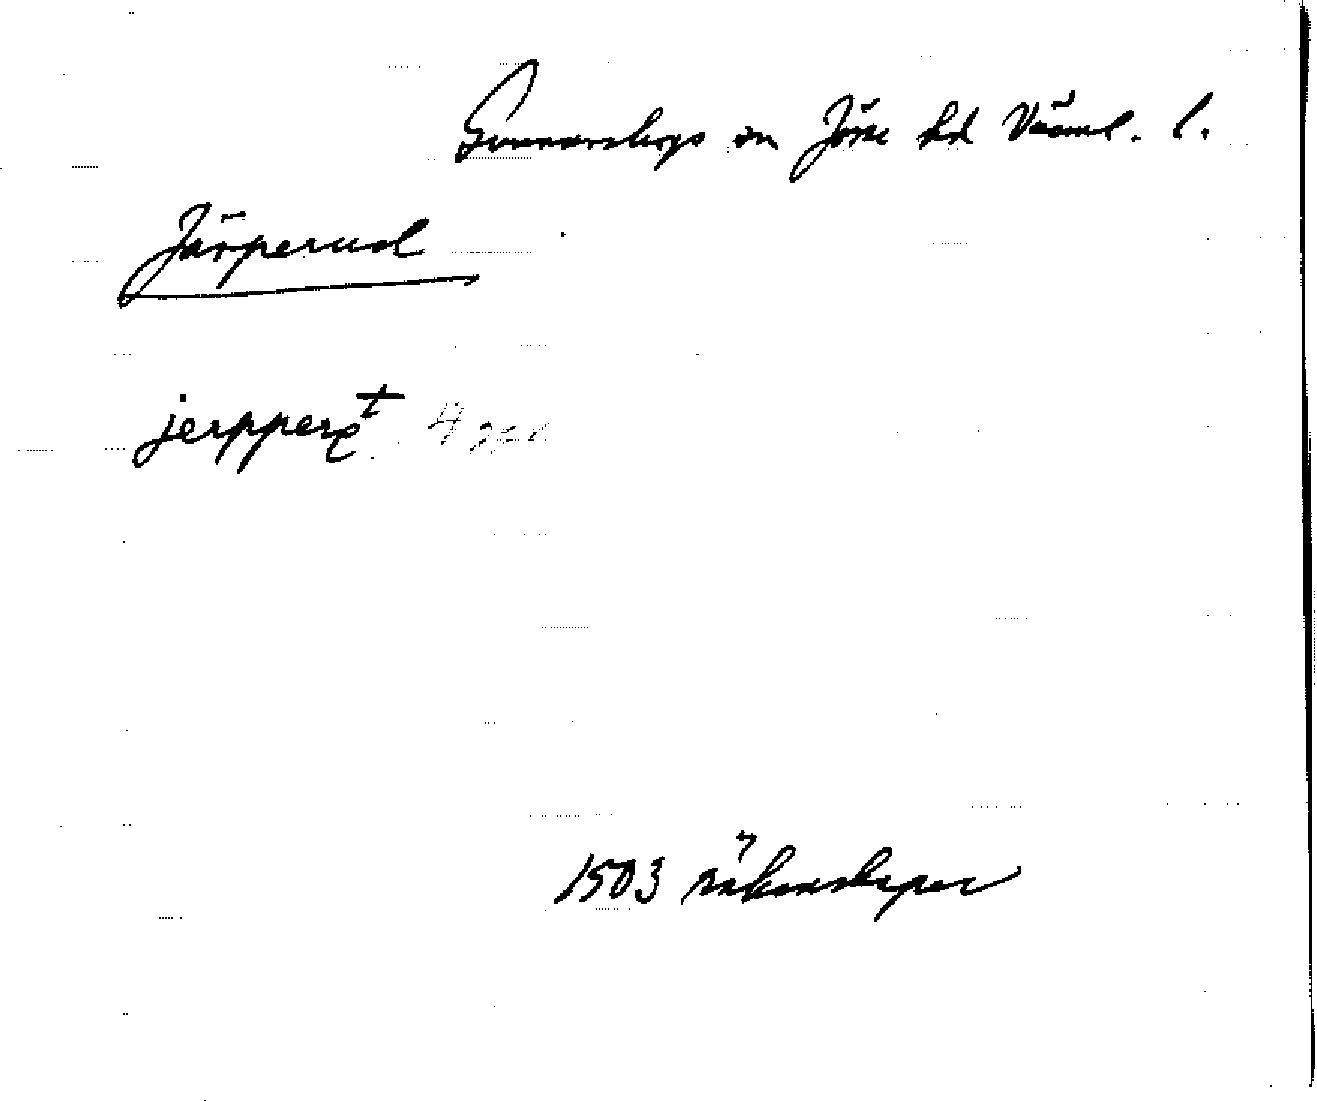 Gunnarskogs sn Jösse hd Värml. l.
Järperud
jerpper
1503 räkenskaper